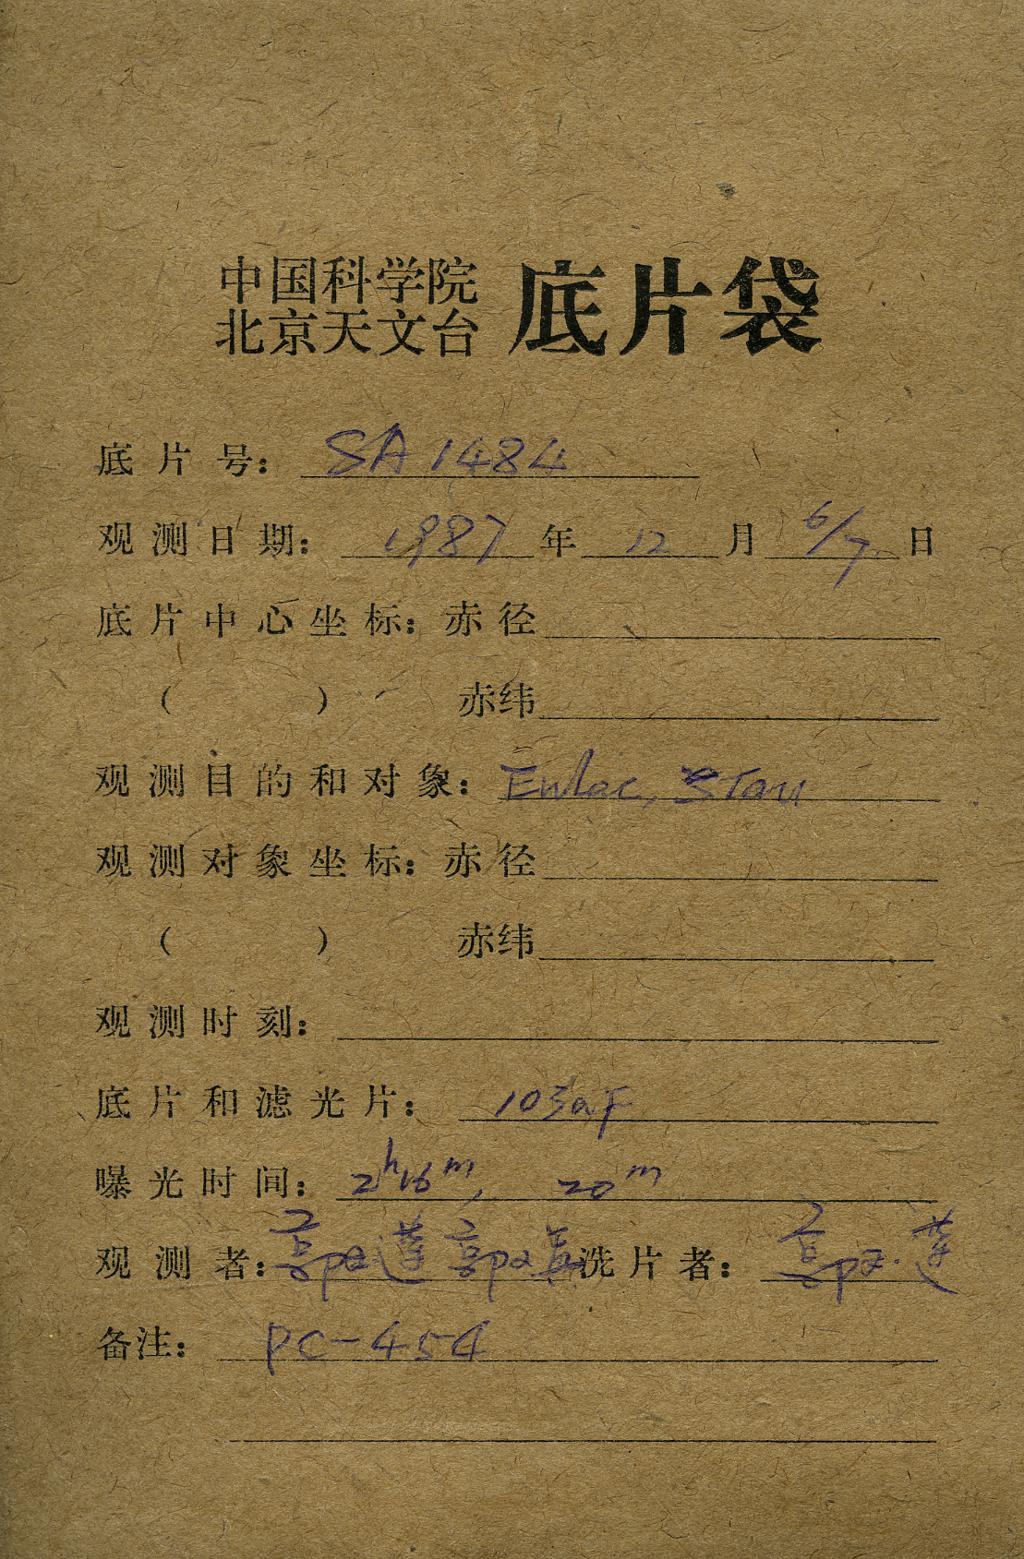 中国科学院
北京天文台 底片袋
底片号: SA 1484
观测日期: 1987 年 12 月 6/7 日
底片中心坐标: 赤径
( ) 赤纬
观测目的和对象:
观测对象坐标: 赤径
( ) 赤纬
观测时刻:
底片和滤光片: 103aF
曝光时间: 2h16m, 20m
观测者: 郭 莲 郭 英 洗片者: 郭 莲
备注: PC-454